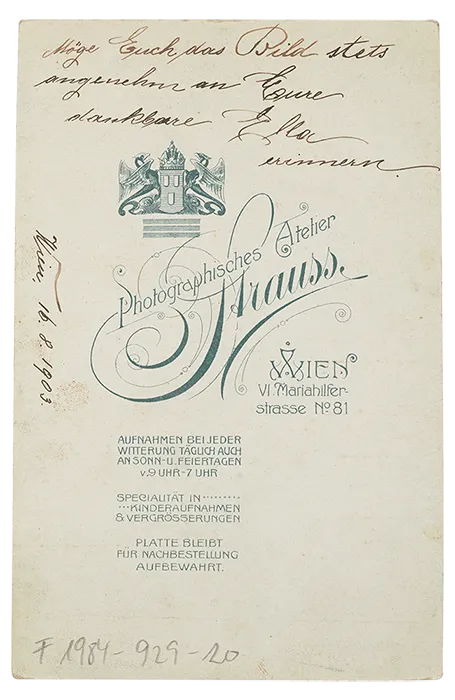 Möge Euch das Bild stets
angenehm an Eure
dankbare Ella
erinnern.
Wien, 16. 8. 1903.
Photographisches Atelier
Strauss.
WIEN
VI Mariahilfer-
strasse No 81
AUFNAHMEN BEI JEDER
WITTERUNG TÄGLICH AUCH
AN SONN- U. FEIERTAGEN
v. 9 UHR - 7 UHR
SPECIALITÄT IN ·········
···KINDERAUFNAHMEN
& VERGRÖSSERUNGEN
PLATTE BLEIBT
FÜR NACHBESTELLUNG
AUFBEWAHRT.
F 1984-929-20